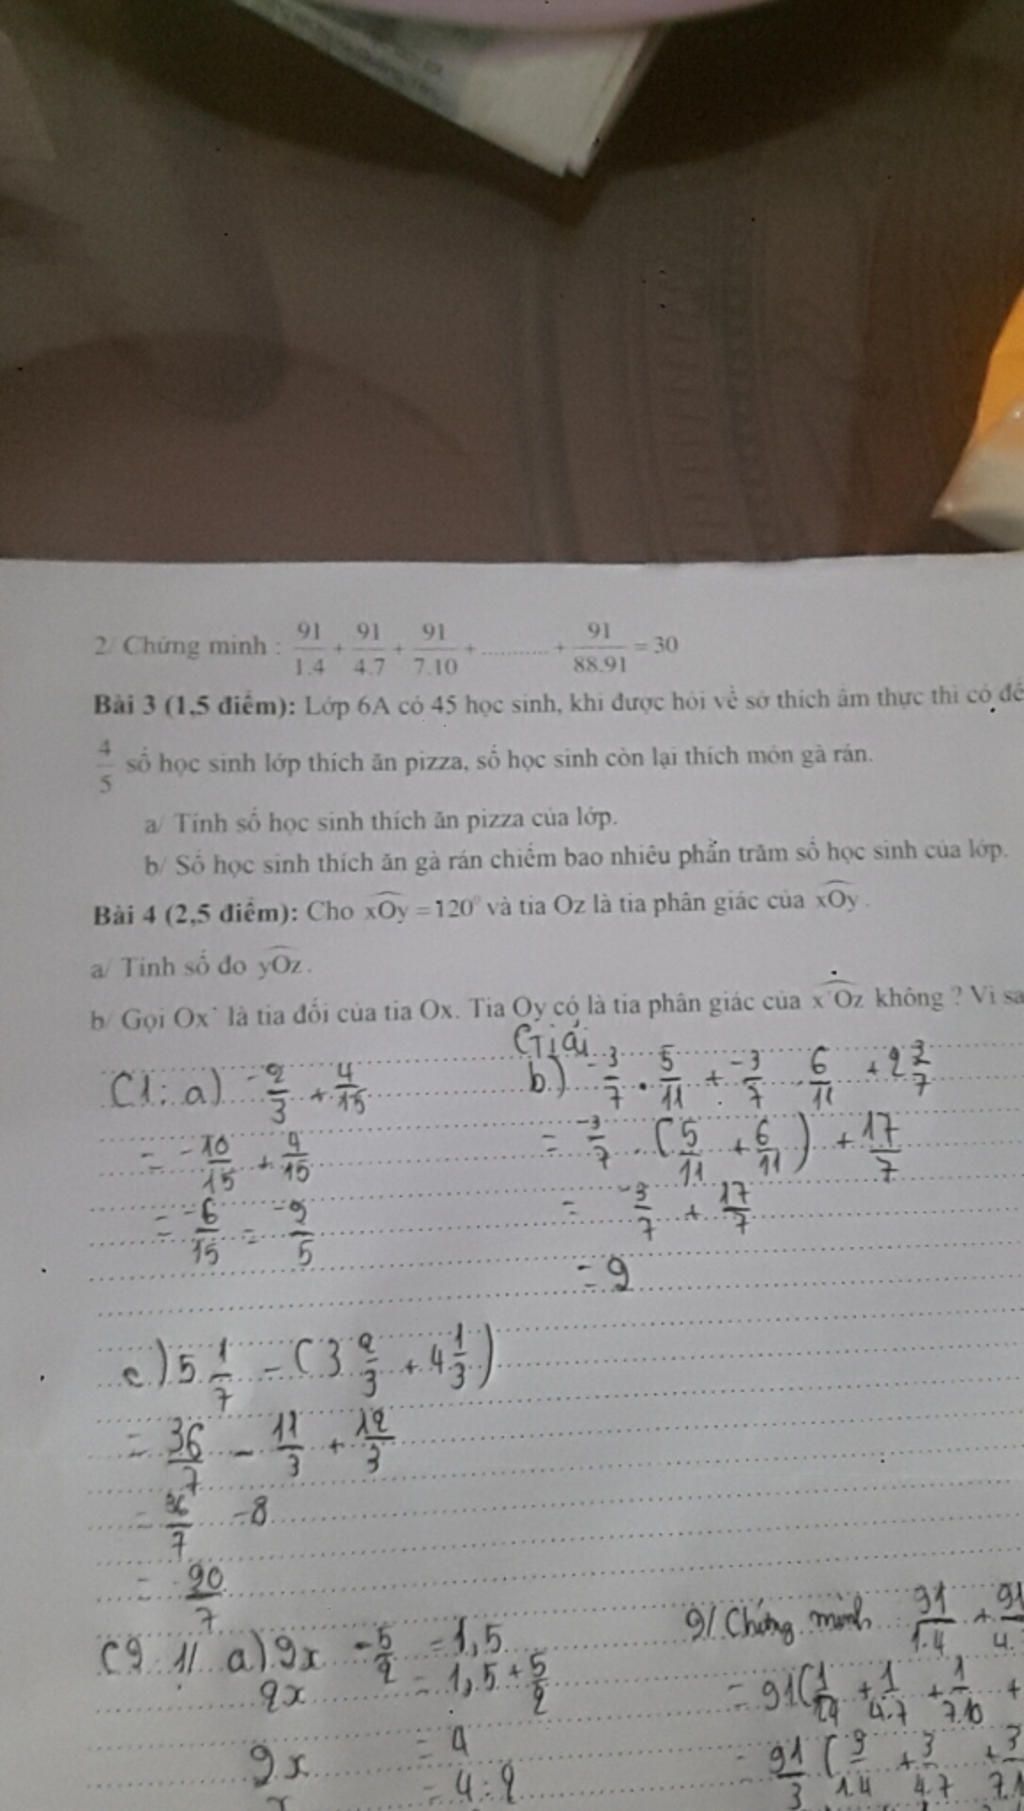 2/ Chứng minh : 91/1.4 + 91/4.7 + 91/7.10 + ........... + 91/88.91 = 30
Bài 3 (1,5 điểm): Lớp 6A có 45 học sinh, khi được hỏi về sở thích ẩm thực thì có
4/5 số học sinh lớp thích ăn pizza, số học sinh còn lại thích món gà rán.
a/ Tính số học sinh thích ăn pizza của lớp.
b/ Số học sinh thích ăn gà rán chiếm bao nhiêu phần trăm số học sinh của lớp.
Bài 4 (2,5 điểm): Cho xOy = 120° và tia Oz là tia phân giác của xOy.
a/ Tính số đo yOz.
b/ Gọi Ox' là tia đối của tia Ox. Tia Oy có là tia phân giác của x'Oz không ? Vì
Giải
C1: a) -2/3 + 4/15
= -10/15 + 4/15
= -6/15 = -2/5
b) -3/7 . 5/11 + -3/7 . 6/11 + 2 3/7
= -3/7 . (5/11 + 6/11) + 17/7
= -3/7 + 17/7
= 2
c) 5 1/7 - (3 2/3 + 4 1/3)
= 36/7 - 11/3 + 12/3
= 36/7 - 8
= -20/7
C2 1/ a) 2x - 5/2 = 1,5
2x = 1,5 + 5/2
2x = 4
x = 4 : 2
2/ Chứng minh 91/1.4 +
= 91(1/14 + 1/4.7 + 1/7.10 +
= 91/3 (3/1.4 + 3/4.7 +